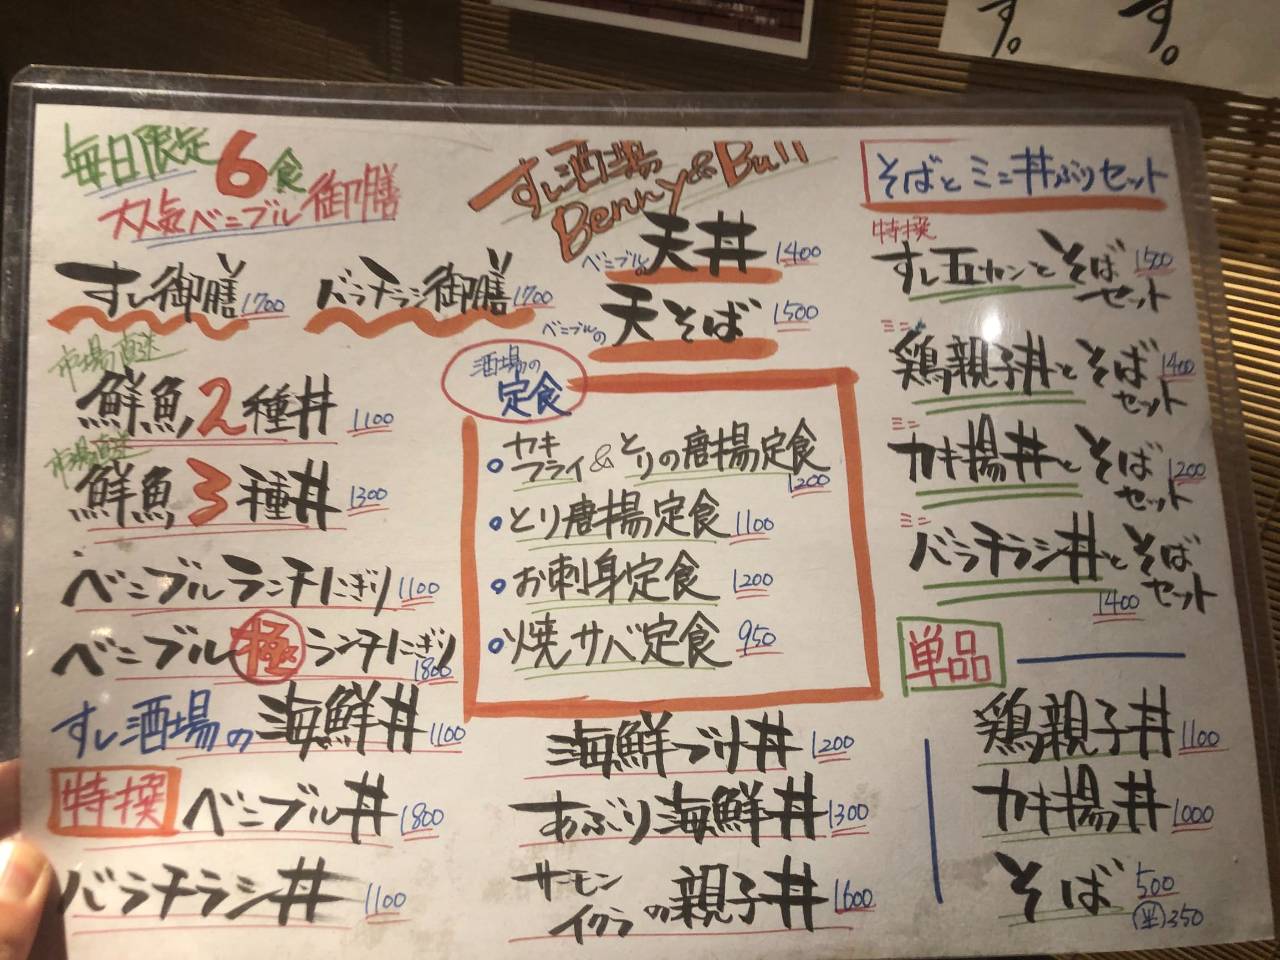 す。
す。
毎日限定6食
大人気ベニブル御膳
すし御膳 1700
バラチラシ御膳 1700
市場直送
鮮魚2種丼 1100
市場直送
鮮魚3種丼 1300
ベニブルランチにぎり 1100
ベニブル極ランチにぎり 1800
すし酒場の海鮮丼 1100
特撰 ベニブル丼 1800
バラチラシ丼 1100
すし酒場
Benny & Bull
ベニブルの天丼 1400
ベニブルの天そば 1500
酒場の
定食
カキフライ&とりの唐揚定食 1200
とり唐揚定食 1100
お刺身定食 1200
焼サバ定食 950
海鮮づけ丼 1200
あぶり海鮮丼 1300
サーモンイクラの親子丼 1600
そばとミニ丼ぶりセット
特撰
すし五カンとそばセット 1500
ミニ
鶏親子丼とそばセット 1400
ミニ
カキ揚丼とそばセット 1200
ミニ
バラチラシ丼とそばセット 1400
単品
鶏親子丼 1100
カキ揚丼 1000
そば 500
半 350